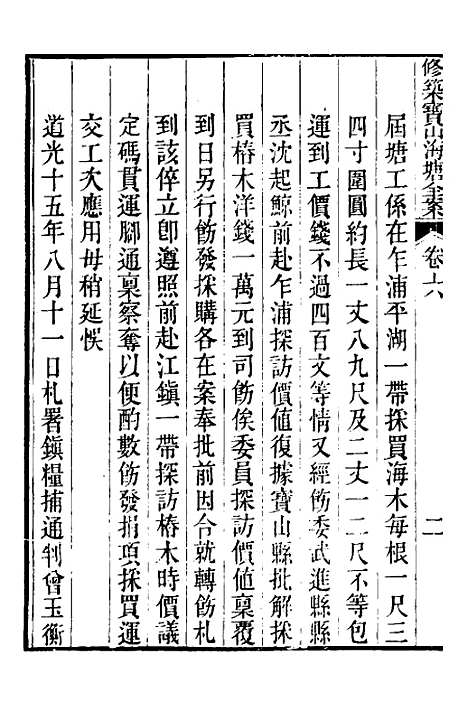 修築寶山海塘全案 卷六 二
屆塘工係在乍浦平湖一帶採買海木每根一尺三
四寸圍圓約長一丈八九尺及二丈一二尺不等包
運到工價錢不過四百文等情又經飭委武進縣縣
丞沈起鯨前赴乍浦探訪價值復據寶山縣批解採
買樁木洋錢一萬元到司飭俟委員探訪價值稟覆
到日另行飭發採購各在案奉批前因合就轉飭札
到該倅立卽遵照前赴江鎮一帶探訪樁木時價議
定碼貫運腳通稟察奪以便酌數飭發捐項採買運
交工次應用毋稍延悞
道光十五年八月十一日札署鎮糧捕通判曾玉衡